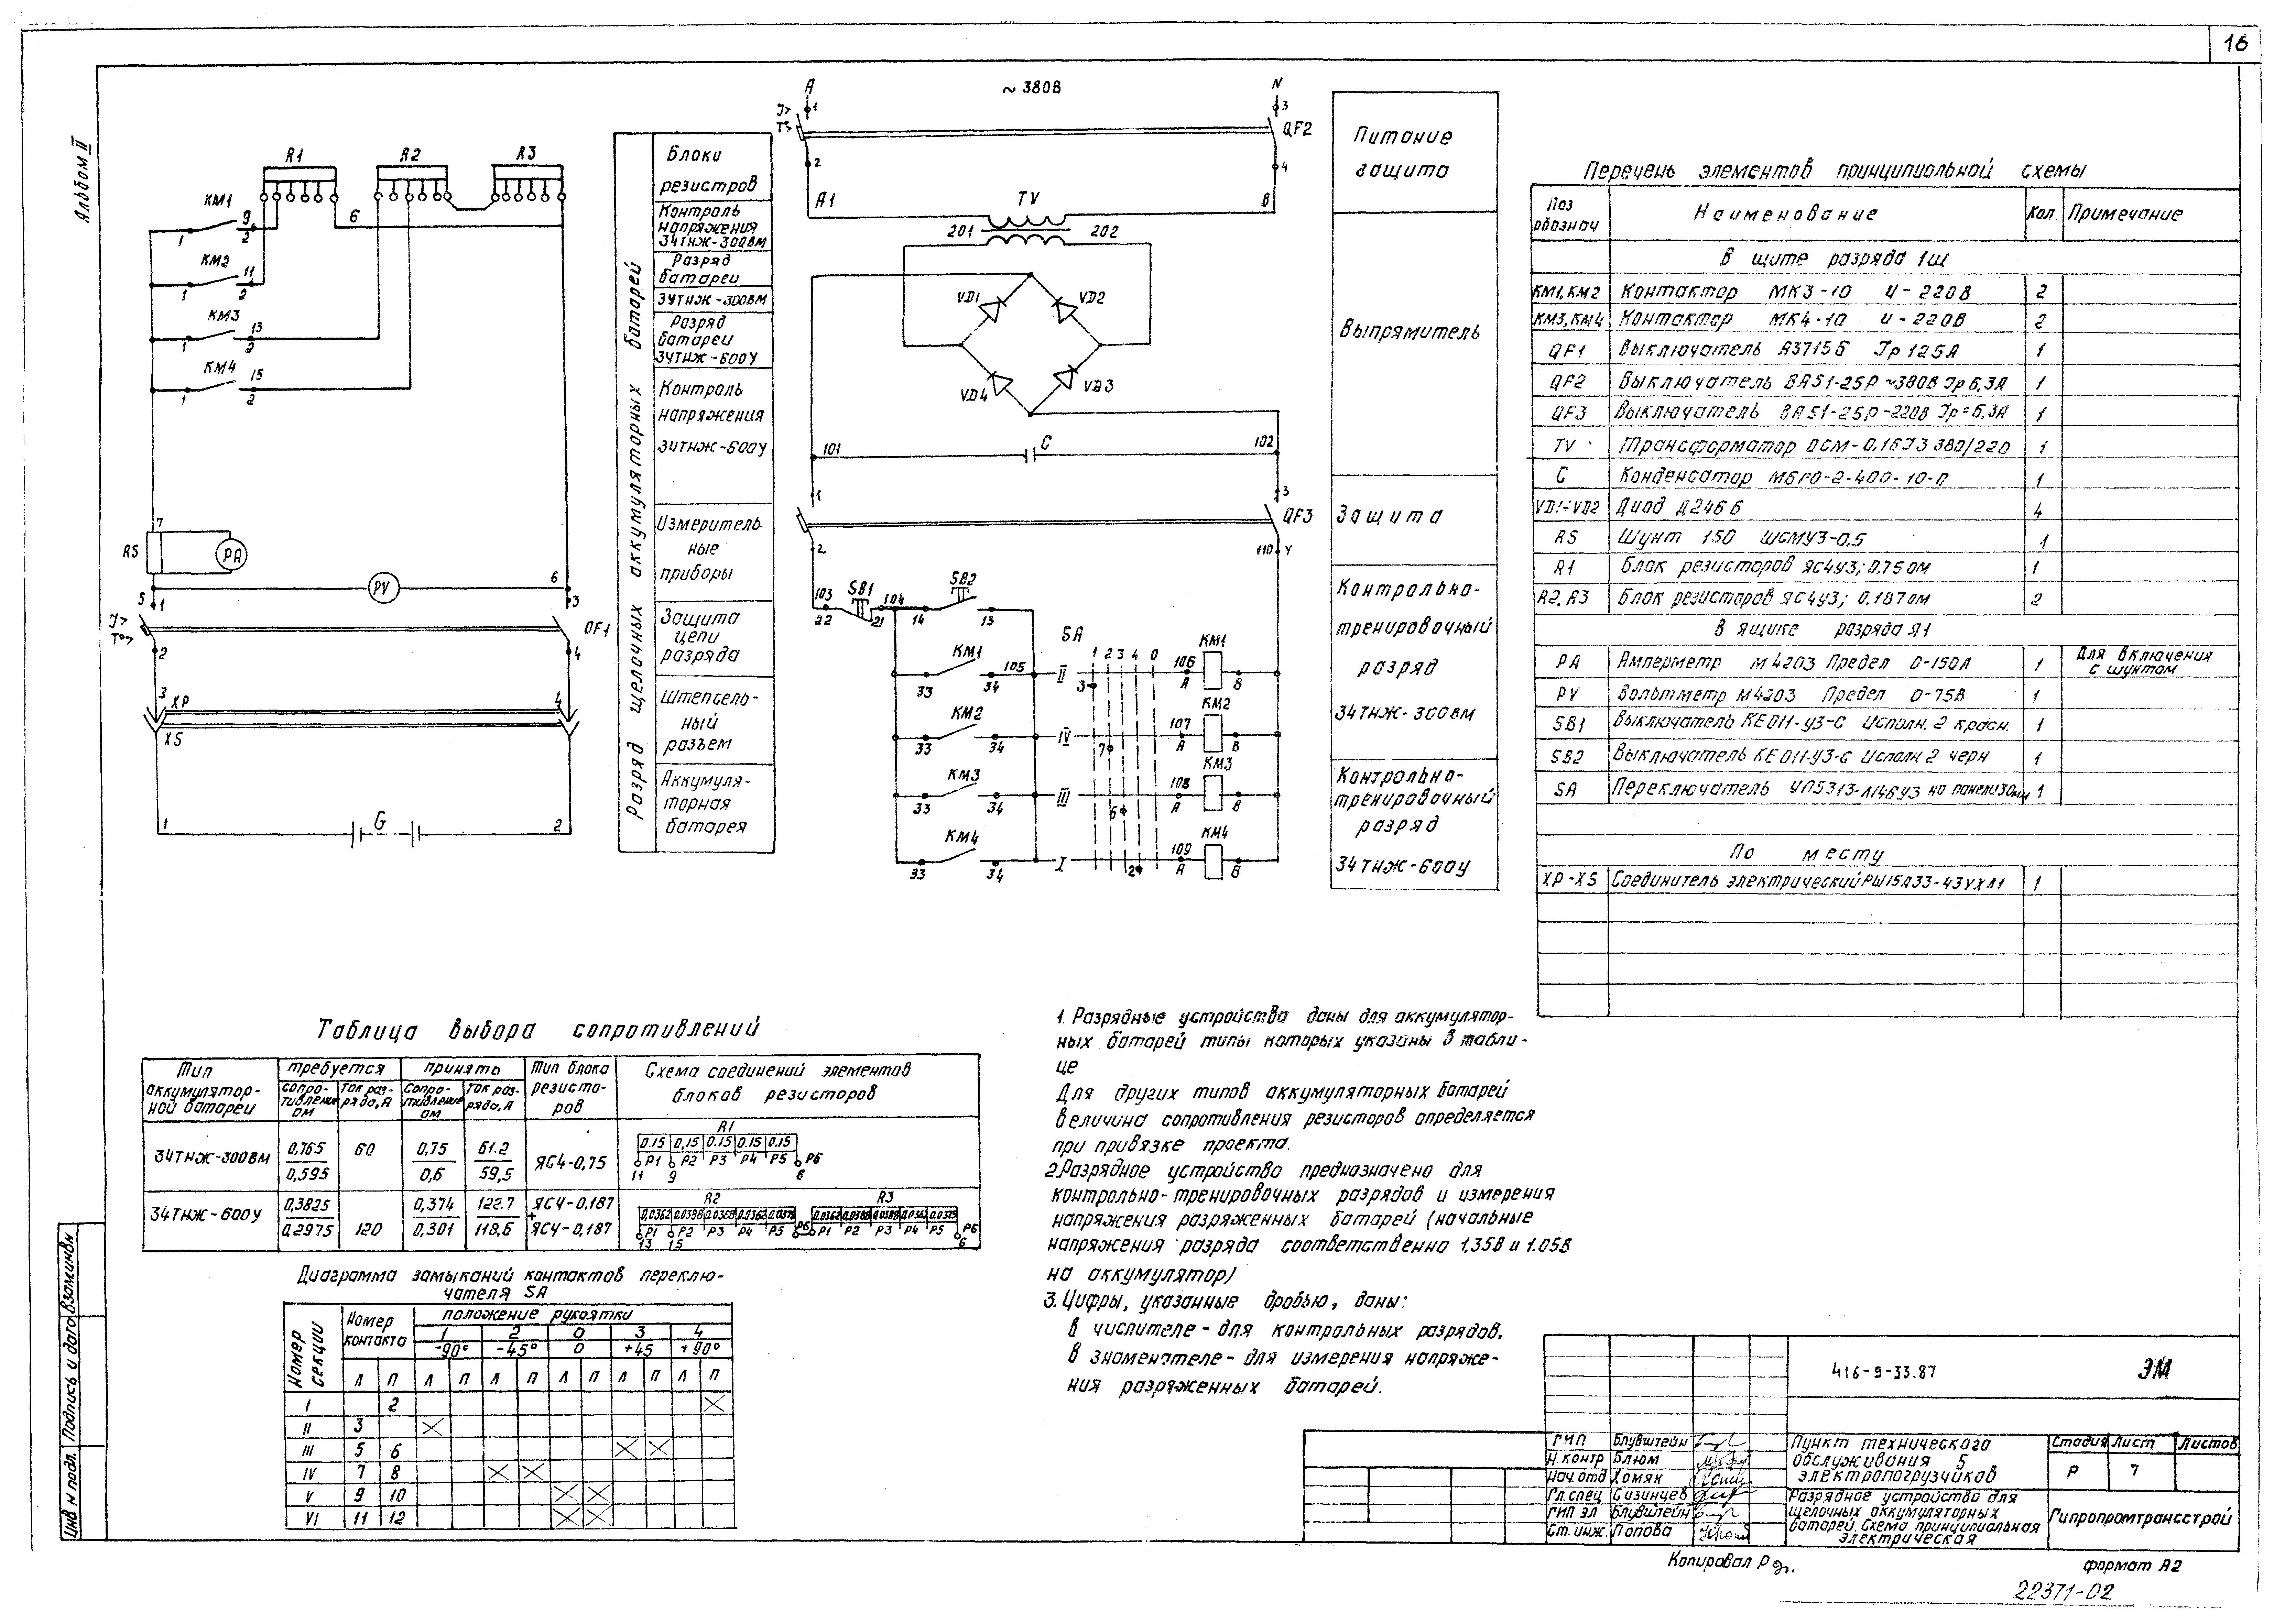 16
Альбом II
R1
R2
R3
КМ1
9
1
2
6
КМ2
11
1
2
КМ3
13
1
2
КМ4
15
1
2
7
RS
PA
PV
6
5
1
3
I>
T°>
QF1
2
4
3
XP
4
XS
1
G
2
Разряд щелочных аккумуляторных батарей
Блоки
резистров
Контроль
напряжения
34ТНЖ-300ВМ
Разряд
батареи
34ТНЖ-300ВМ
Разряд
батареи
34ТНЖ-600У
Контроль
напряжения
34ТНЖ-600У
Измеритель-
ные
приборы
Защита
цепи
разряда
Штепсель-
ный
разъем
Аккумуля-
торная
батарея
A
~380В
N
1
3
I>
T°>
QF2
2
4
A1
TV
B
201
202
VD1
VD2
VD4
VD3
101
C
102
1
3
QF3
2
110
У
103
SB1
104
SB2
22
21
14
13
SA
КМ1
105
33
34
II
1 2 3 4 0
3
106
А
КМ1
В
КМ2
33
34
IV
7
107
А
КМ2
В
КМ3
33
34
III
6
108
А
КМ3
В
КМ4
33
34
I
2
109
А
КМ4
В
Питание
защита
Выпрямитель
Защита
Контрольно-
тренировочный
разряд
34ТНЖ-300ВМ
Контрольно-
тренировочный
разряд
34ТНЖ-600У
Перечень элементов принципиальной схемы
Поз обознач Наименование Кол. Примечание
В щите разряда 1Щ
КМ1, КМ2 Контактор МК3-10 U-220В 2
КМ3, КМ4 Контактор МК4-10 U-220В 2
QF1 Выключатель А3715Б Iр 125А 1
QF2 Выключатель ВА51-25Р ~380В Iр 6,3А 1
QF3 Выключатель ВА51-25Р -220В Iр=6,3А 1
TV Трансформатор ОСМ-0,16У3 380/220 1
C Конденсатор МБГО-2-400-10-П 1
VD1÷VD2 Диод Д246Б 4
RS Шунт 150 ШСМУ3-0,5 1
R1 Блок резисторов ЯС4У3; 0,75 Ом 1
R2, R3 Блок резисторов ЯС4У3; 0,187 Ом 2
В ящике разряда Я1
PA Амперметр М4203 Предел 0-150А 1 Для включения с шунтом
PV Вольтметр М4203 Предел 0-75В 1
SB1 Выключатель КЕ011-У3-С Исполн. 2 красн. 1
SB2 Выключатель КЕ011-У3-С Исполн 2 черн 1
SA Переключатель УП5313-Л146У3 на панели 30мм 1
По месту
XP-XS Соединитель электрический РШ15А33-43УХЛ1 1
Таблица выбора сопротивлений
Тип аккумулятор-ной батареи требуется принять Тип блока резисто-ров Схема соединений элементов блоков резисторов
сопро-тивление ом Ток раз-ряда, А Сопро-тивление ом Ток раз-ряда, А
34ТНЖ-300ВМ 0,765 60 0,75 61.2 ЯС4-0,75
0,595 0,6 59,5
R1
0.15 0,15 0.15 0.15 0,15
Р1 Р2 Р3 Р4 Р5 Р6
11 9 6
34ТНЖ-600У 0,3825 0,374 122.7 ЯС4-0.187
+
0,2975 120 0,301 118,6 ЯС4-0,187
R2 R3
0.0362 0.0398 0.0398 0.0362 0.0375 0.0362 0.0398 0.0398 0.0362 0.0375
Р1 Р2 Р3 Р4 Р5 Р6 Р1 Р2 Р3 Р4 Р5 Р6
13 15 6
Диаграмма замыканий контактов переклю-
чателя SA
Номер секции Номер контакта положение рукоятки
1 2 0 3 4
-90° -45° 0 +45 +90°
Л П Л П Л П Л П Л П Л П
I 2
II 3
III 5 6
IV 7 8
V 9 10
VI 11 12
1. Разрядные устройства даны для аккумулятор-
ных батарей типы которых указаны в табли-
це
Для других типов аккумуляторных батарей
величина сопротивления резисторов определяется
при привязке проекта.
2. Разрядное устройство предназначено для
контрольно-тренировочных разрядов и измерения
напряжения разряженных батарей (начальные
напряжения разряда соответственно 1,35В и 1.05В
на аккумулятор)
3. Цифры, указанные дробью, даны:
в числителе - для контрольных разрядов,
в знаменателе - для измерения напряже-
ния разряженных батарей.
416-9-33.87
ЭМ
ГИП Блувштейн
Н контр Блюм
Нач. отд Хомяк
Гл. спец Сизинцев
ГИП эл Блувштейн
Ст. инж. Попова
Пункт технического
обслуживания 5
электропогрузчиков
Стадия Лист Листов
Р 7
Разрядное устройство для
щелочных аккумуляторных
батарей. Схема принципиальная
электрическая
Гипропромтрансстрой
Копировал
формат А2
22371-02
Инв N подл. Подпись и дата Взам инв N